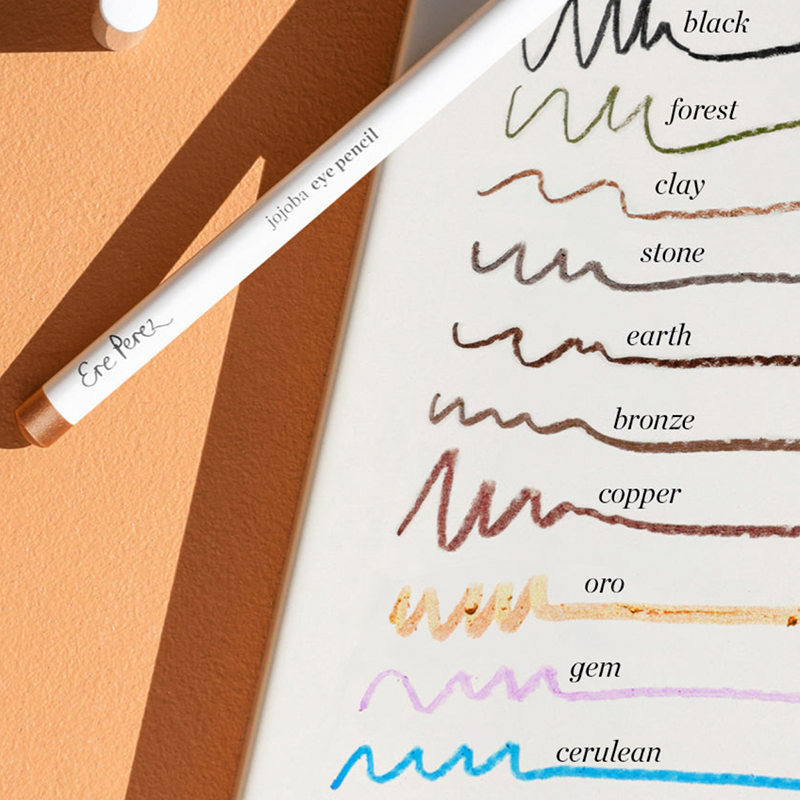 black
forest
clay
stone
earth
bronze
copper
oro
gem
cerulean
jojoba eye pencil
Ere Perez